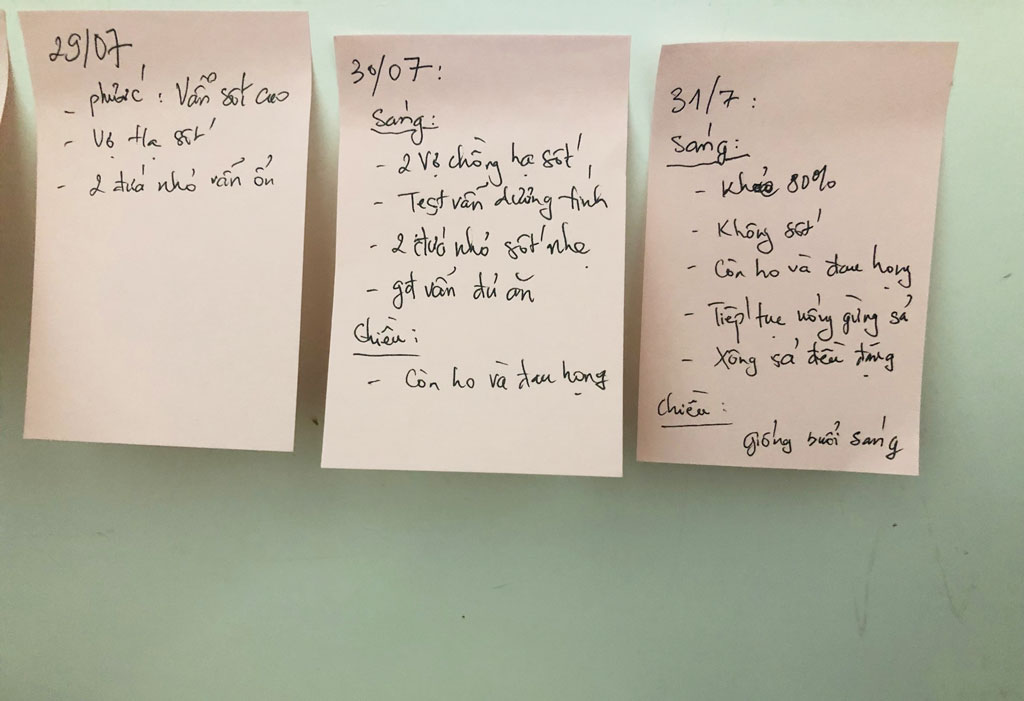 29/07
- phước : Vẫn sốt cao
- Vợ hạ sốt
- 2 đứa nhỏ vẫn ổn
30/07 :
Sáng :
- 2 Vợ chồng hạ sốt,
- Test vẫn dương tính
- 2 đứa nhỏ sốt nhẹ
- gđ vẫn đủ ăn
Chiều :
- Còn ho và đau họng
31/7 :
Sáng :
- Khỏe 80%
- Không sốt
- Còn ho và đau họng
- Tiếp tục uống gừng sả
- Xông sả đều đặng
Chiều :
giống buổi sáng